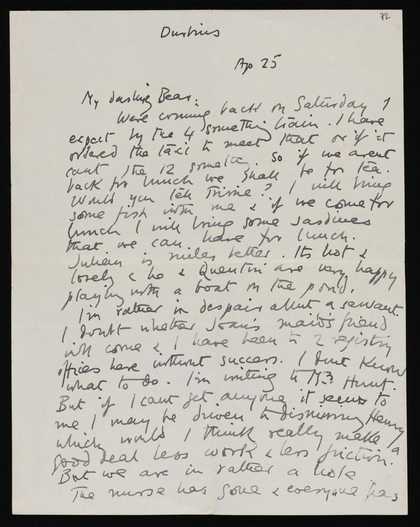 72
Ap 25
My darling Bear.
We're coming back on Saturday I
expect by the 4 something train. I have
ordered the taxi to meet that or if it
cant the 12 someth. So if we arent
back for lunch we shall be for tea.
Would you tell ? I will bring
some fish with me & if we come for
lunch I will bring some sardines
that we can have for lunch.
Julian is miles better. Its hot &
lovely & he & Quentin are very happy
playing with a boat on the pond.
I'm rather in despair about a servant.
I doubt whether Joans maids friend
will come & I have been to 2 registry
offices here without success. I dont know
what to do. I'm writing to Mrs Hunt.
But if I cant get anyone it seems to
me I may be driven to dismissing Henry
which would I think really make a
good deal less work & less friction.
But we are in rather a hole
The nurse has gone & everyone has